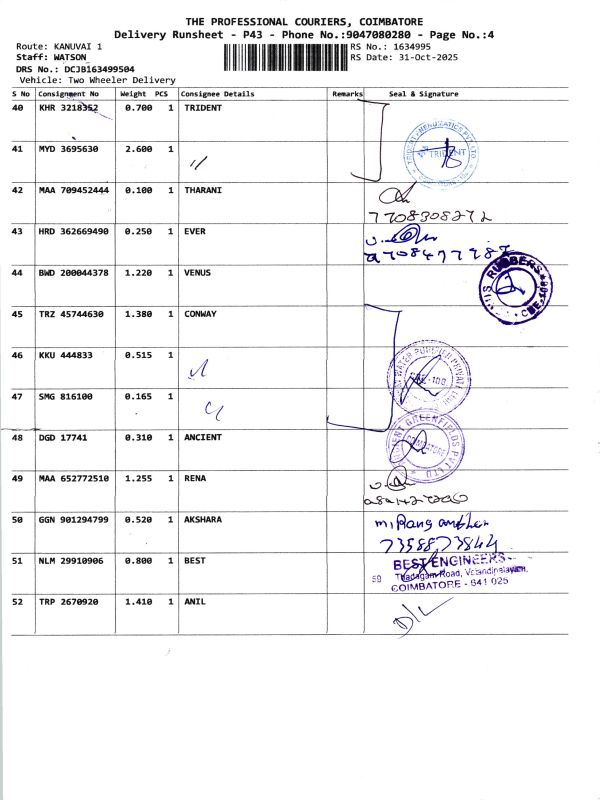 THE PROFESSIONAL COURIERS, COIMBATORE
Delivery Runsheet - P43 - Phone No.:9047080280 - Page No.:4
Route: KANUVAI 1
RS No.: 1634995
Staff: WATSON
RS Date: 31-Oct-2025
DRS No.: DCJB163499504
Vehicle: Two Wheeler Delivery
S No Consignment No Weight PCS Consignee Details Remarks Seal & Signature
40 KHR 3218352 0.700 1 TRIDENT
41 MYD 3695630 2.600 1 〃
TRIDENT
42 MAA 709452444 0.100 1 THARANI
7708308272
43 HRD 362669490 0.250 1 EVER
44 BWD 200044378 1.220 1 VENUS
RUBBERS
45 TRZ 45744630 1.380 1 CONWAY
46 KKU 444833 0.515 1 〃
WATER PURIFIER PRIVATE
47 SMG 816100 0.165 1 〃
48 DGD 17741 0.310 1 ANCIENT
GREENFIELDS PVT LTD
COIMBATORE
49 MAA 652772510 1.255 1 RENA
50 GGN 901294799 0.520 1 AKSHARA
7358873844
51 NLM 29910906 0.800 1 BEST
BEST ENGINEERS
59 Thadagam Road,
COIMBATORE - 641 025
52 TRP 2670920 1.410 1 ANIL
D/L